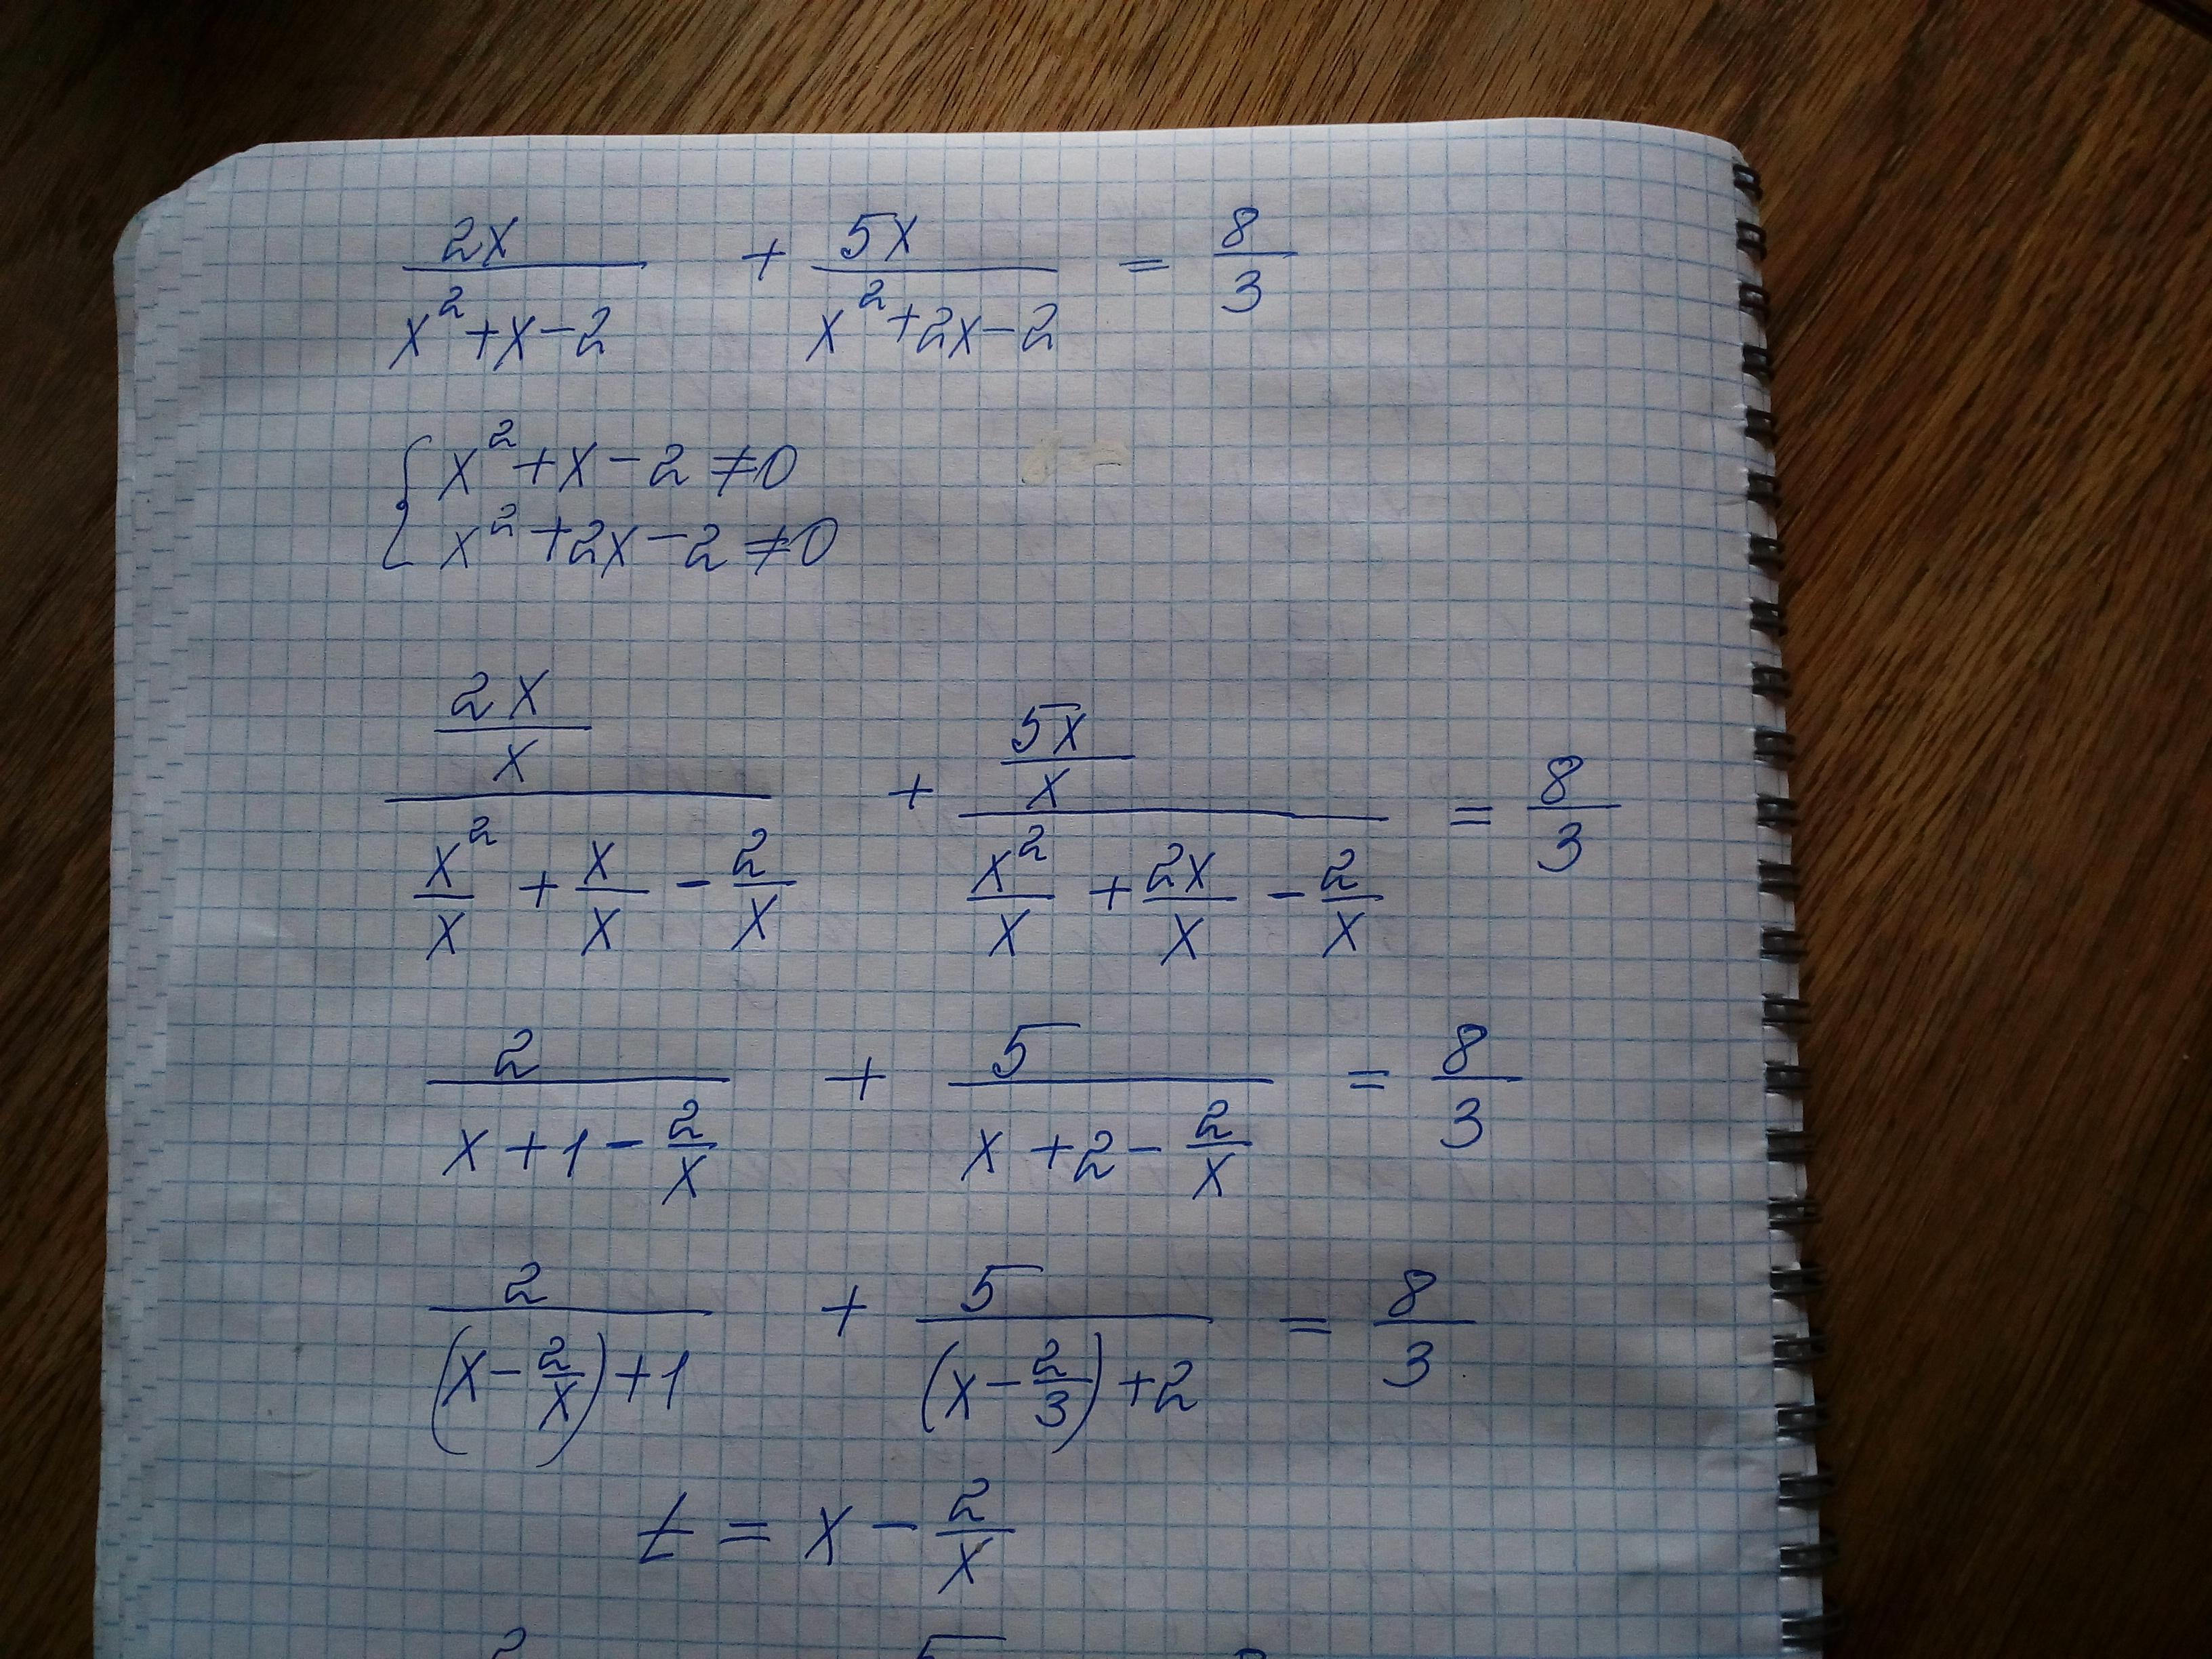 2x/(x²+x−2) + 5x/(x²+2x−2) = 8/3
{ x²+x−2≠0
x²+2x−2≠0
(2x/x)/(x²/x + x/x − 2/x) + (5x/x)/(x²/x + 2x/x − 2/x) = 8/3
2/(x+1−2/x) + 5/(x+2−2/x) = 8/3
2/((x−2/x)+1) + 5/((x−2/3)+2) = 8/3
t = x − 2/x